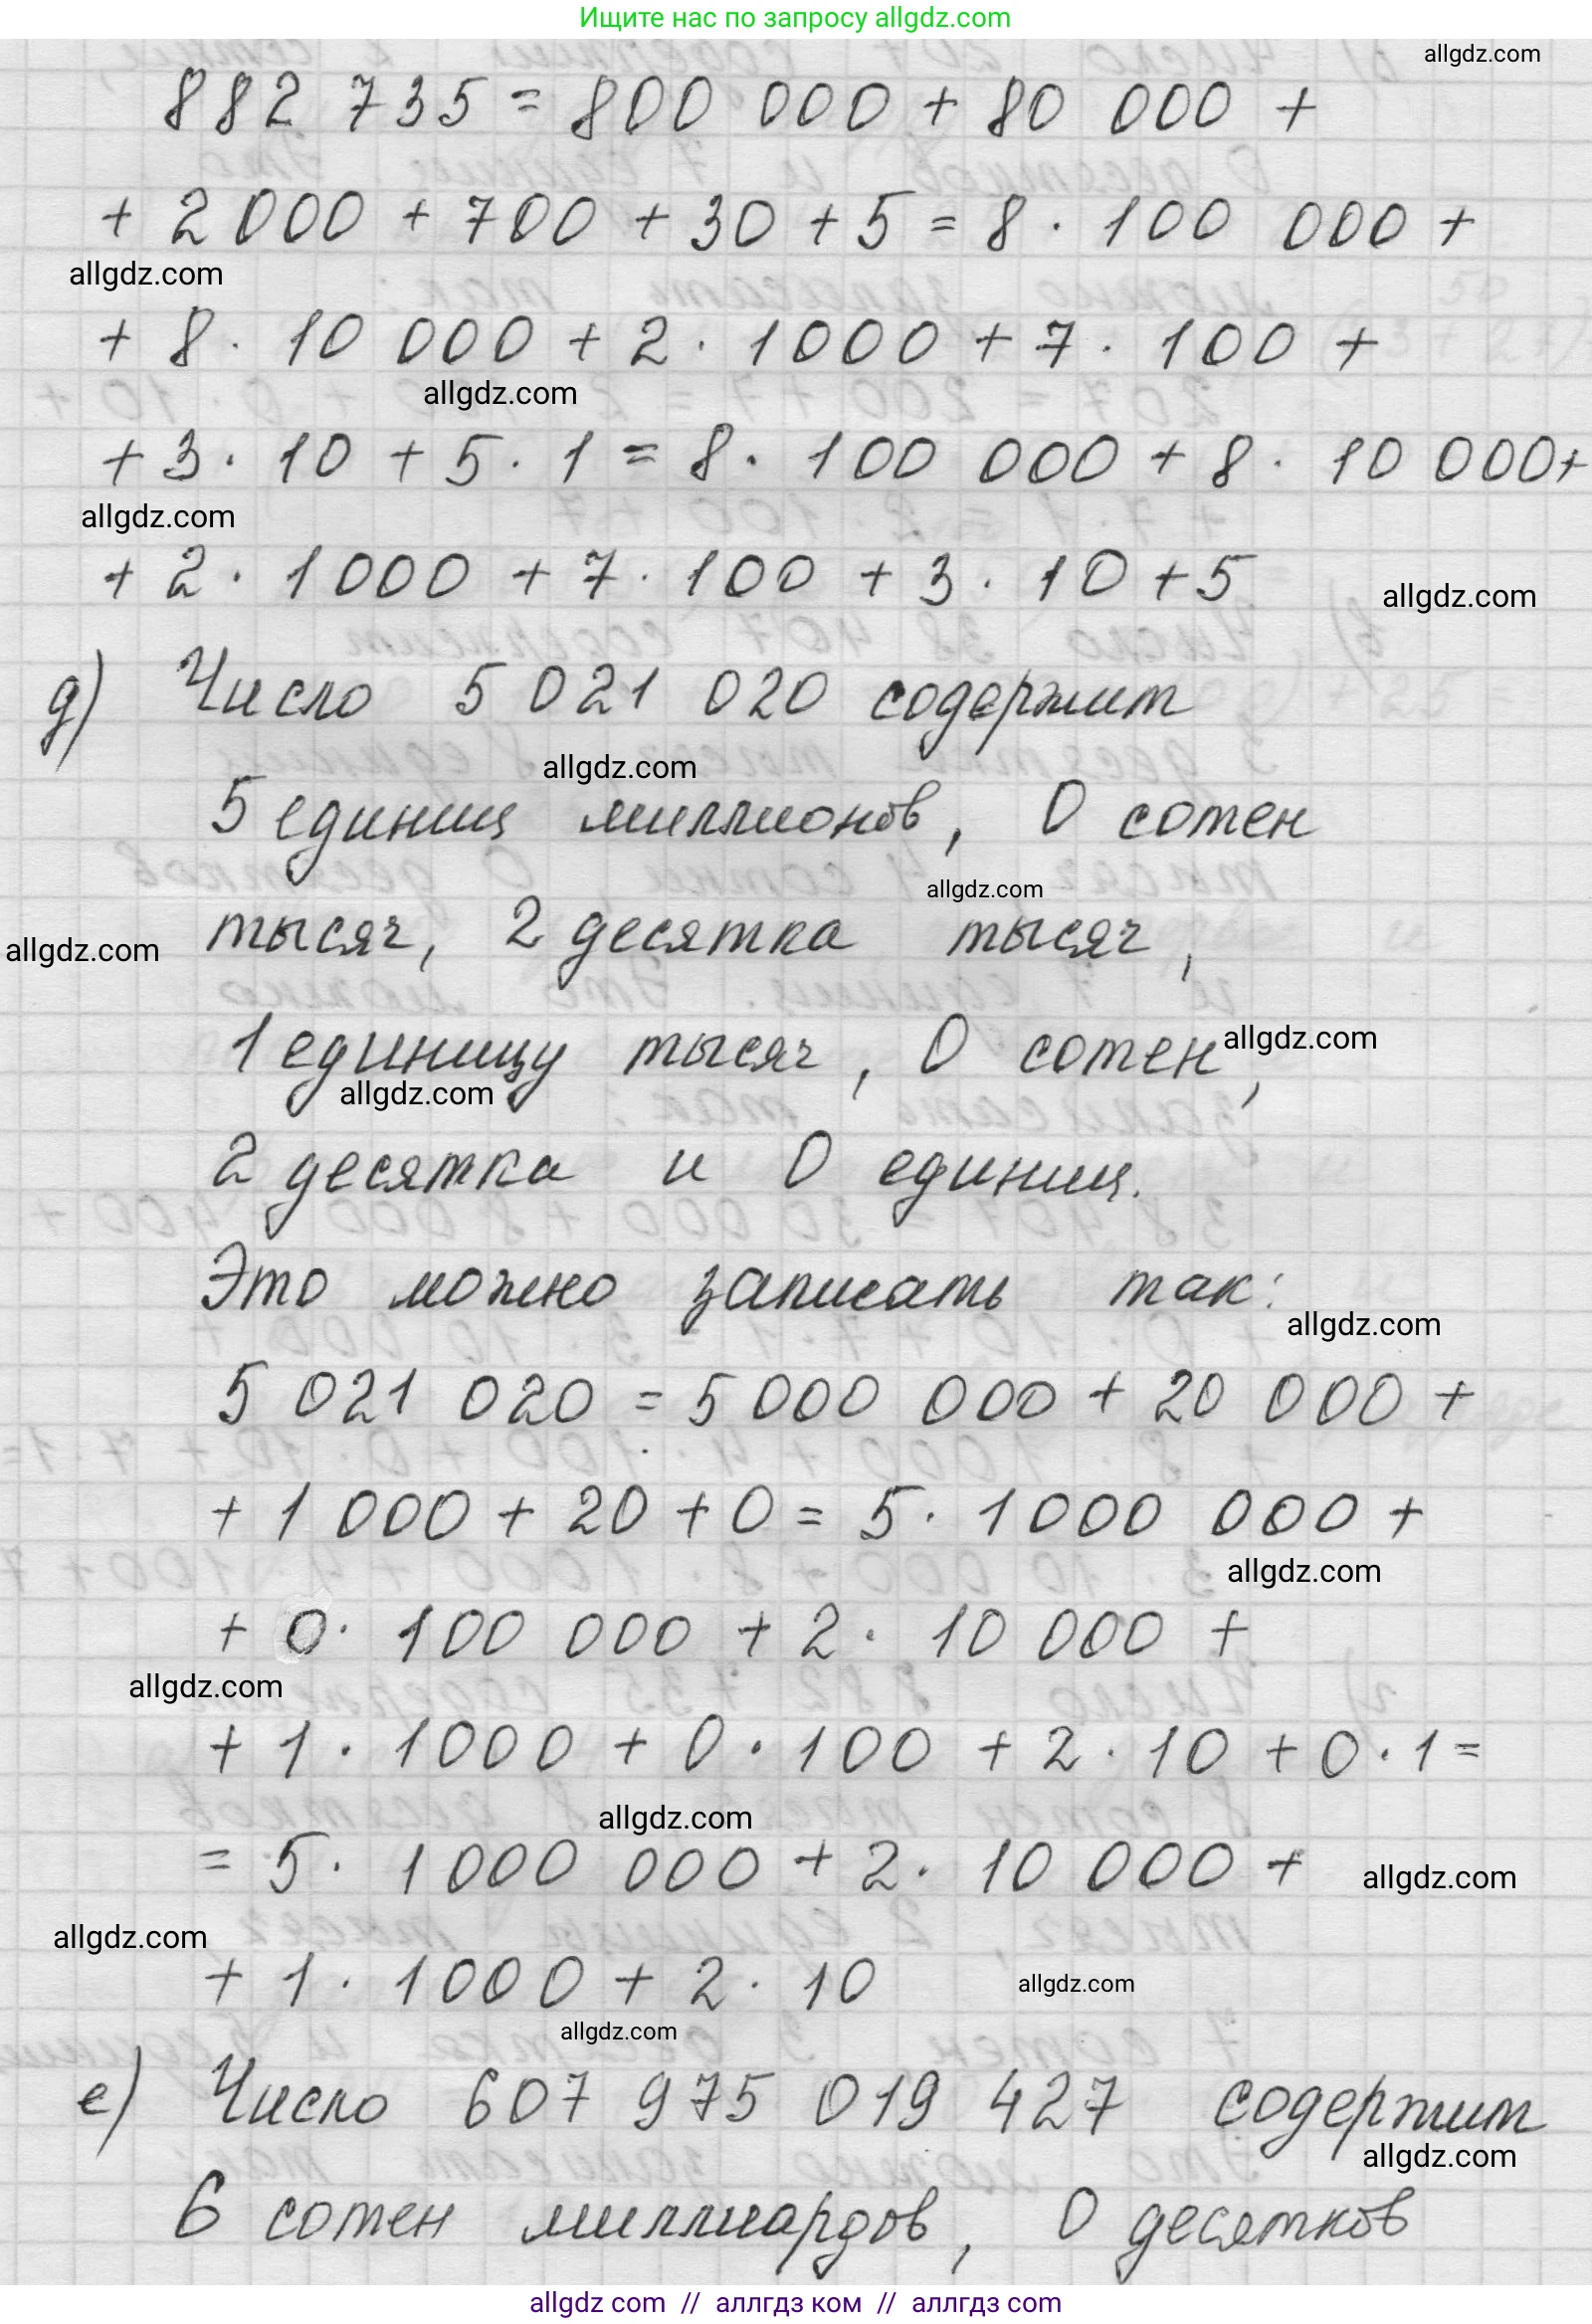 Ищите нас по запросу allgdz.com
allgdz.com
882 735 = 800 000 + 80 000 +
+ 2 000 + 700 + 30 + 5 = 8 · 100 000 +
allgdz.com
+ 8 · 10 000 + 2 · 1000 + 7 · 100 +
allgdz.com
+ 3 · 10 + 5 · 1 = 8 · 100 000 + 8 · 10 000 +
allgdz.com
+ 2 · 1000 + 7 · 100 + 3 · 10 + 5
allgdz.com
д) Число 5 021 020 содержит
allgdz.com
5 единиц миллионов, 0 сотен
allgdz.com
тысяч, 2 десятка тысяч,
allgdz.com
1 единицу тысяч, 0 сотен,
allgdz.com
allgdz.com
2 десятка и 0 единиц.
Это можно записать так:
allgdz.com
5 021 020 = 5 000 000 + 20 000 +
+ 1 000 + 20 + 0 = 5 · 1000 000 +
allgdz.com
+ 0 · 100 000 + 2 · 10 000 +
allgdz.com
+ 1 · 1000 + 0 · 100 + 2 · 10 + 0 · 1 =
allgdz.com
= 5 · 1000 000 + 2 · 10 000 +
allgdz.com
allgdz.com
+ 1 · 1000 + 2 · 10
allgdz.com
allgdz.com
е) Число 607 975 019 427 содержит
allgdz.com
6 сотен миллиардов, 0 десятков
allgdz.com // аллгдз ком // аллгдз com